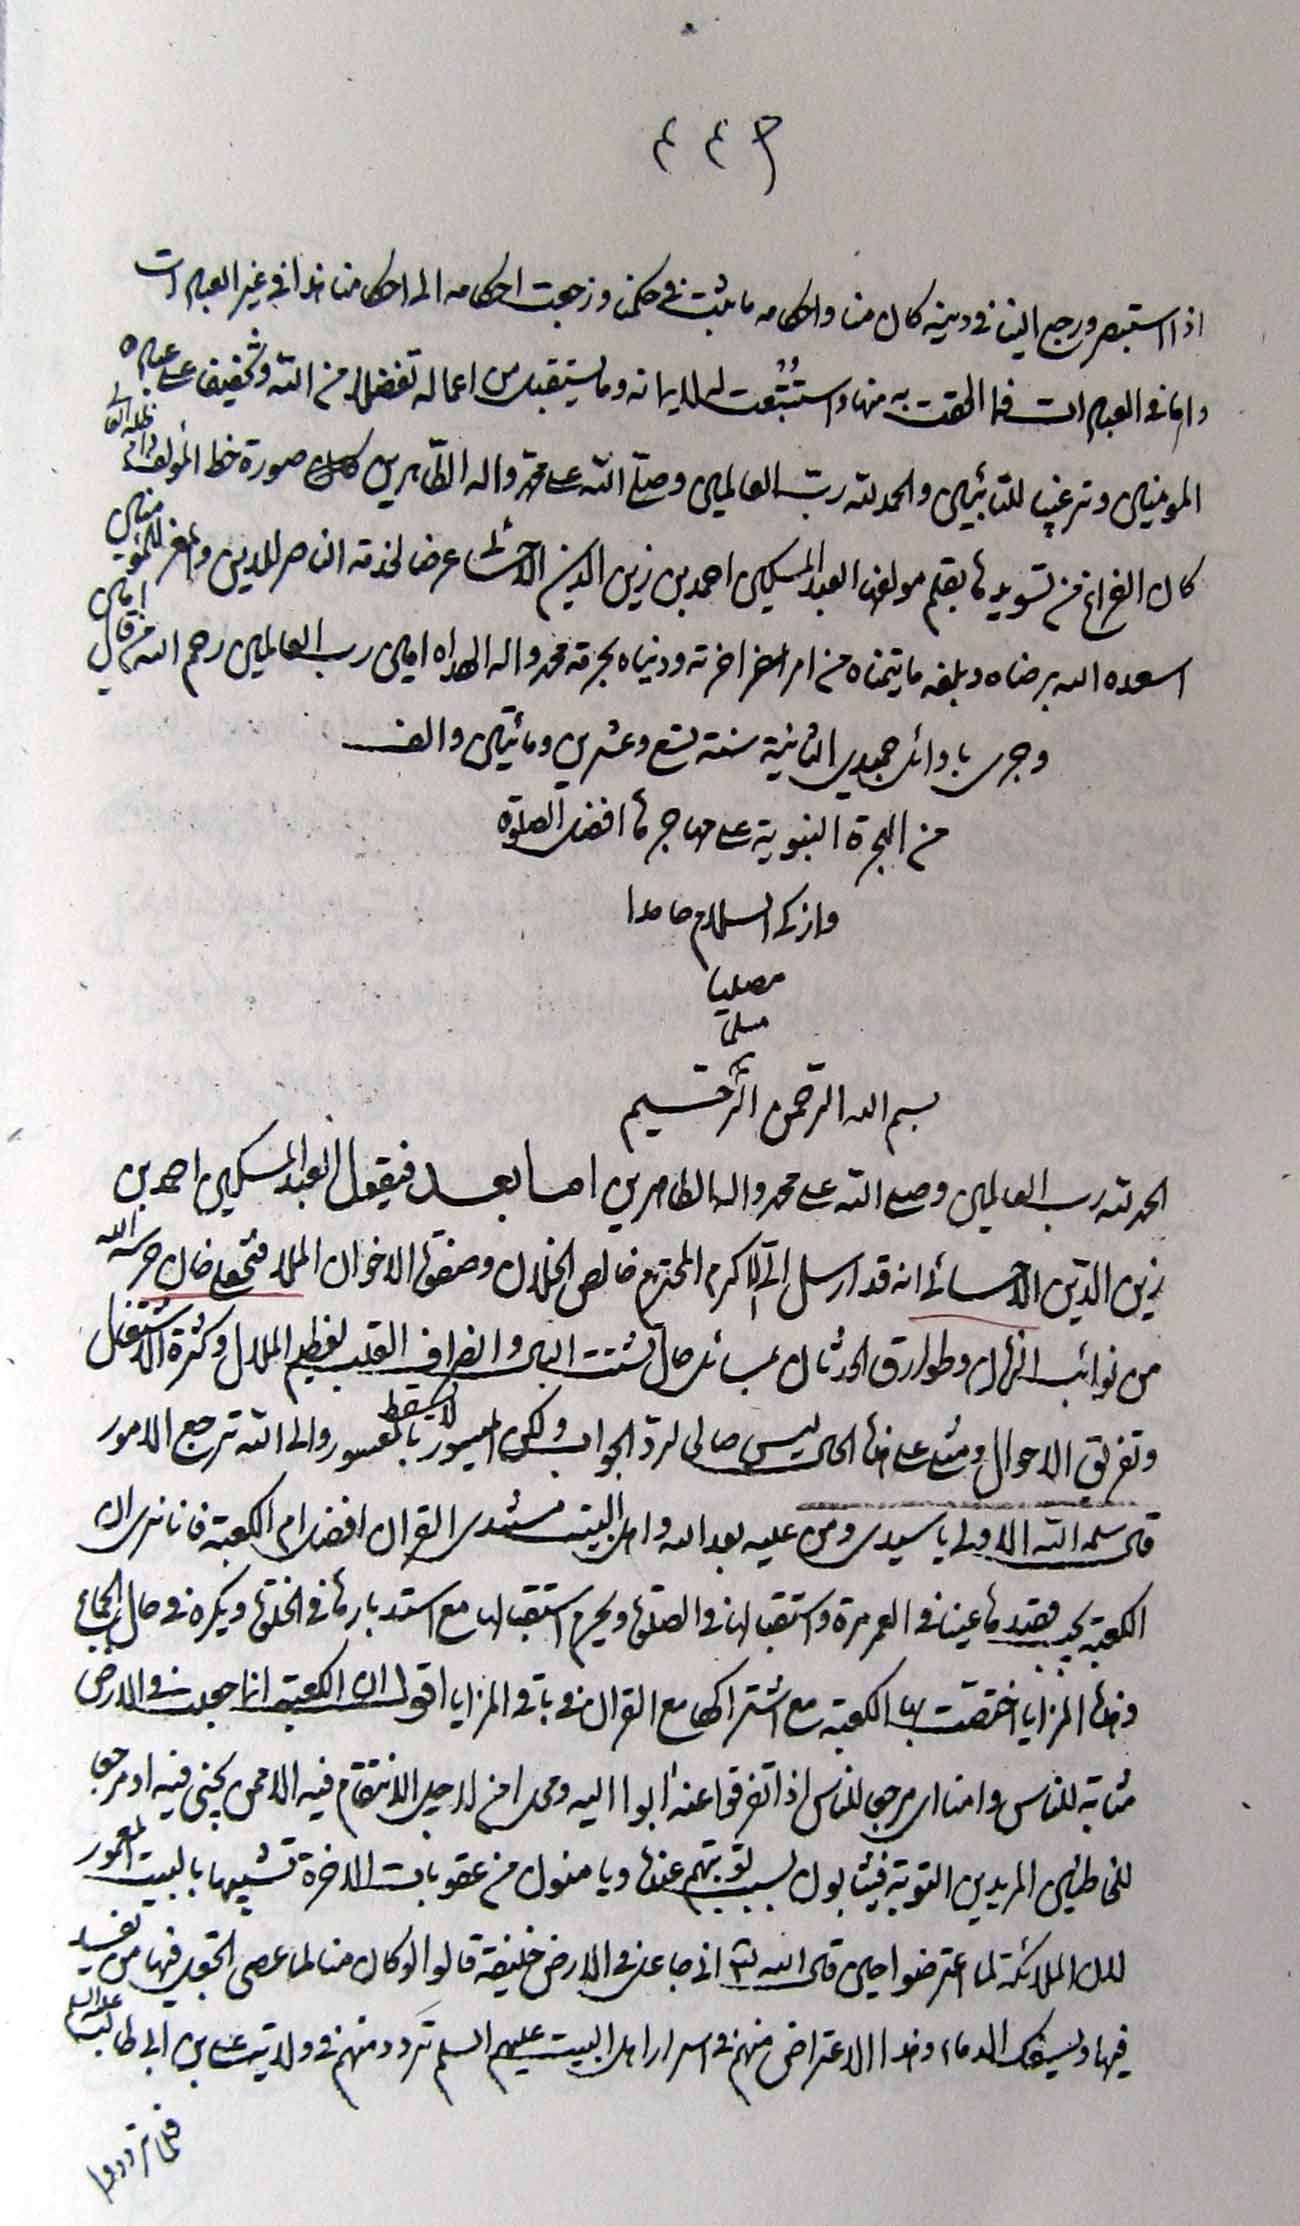 ٤٤٣
اذا استبصر ورجع الينا في دينه كان منا واحكامه ما يثبت في حكمنا و رجعت احكامه الى احكامنا هذا في غير العبادات
واما في العبادات فما لحقت به منها واستتبعت له لايمانه وما يستقبل من اعماله تفضلا من الله وتخفيفا على عباده
المومنين وترغيبا للتائبين والحمد لله رب العالمين وصلى الله على محمد واله الطاهرين كان صورة خط المولف دام ظله العالي
كان الفراغ من تسويدها بقلم مولفها العبد المسكين احمد بن زين الدين الاحسائي عرضا لخدمة الناصر للدين والمعز للمؤمنين
اسعده الله برضاه وبلغه ما يتمناه من امر اخرته ودنياه بحرمة محمد واله الهداه امين رب العالمين رحم الله من قال امين
وجرى باوائل جميدي الثانية سنة تسع وعشرين ومائتين والف
من الهجرة النبوية على مهاجرها افضل الصلوة
وازكى السلام حامدا
مصليا
مسلما
بسم الله الرحمن الرحيم
الحمد لله رب العالمين وصلى الله على محمد واله الطاهرين اما بعد فيقول العبد المسكين احمد بن
زين الدين الاحسائي انه قد ارسل الي الاكرم المحترم خالص الخلان وصفوة الاخوان الملا فتحعلي خان حرسه الله
من نوائب الزمان وطوارق الحدثان بمسائل حال تشتت البال وانصراف القلب لعظيم الملال وكثرة الاشتغال
وتفرق الاحوال ومثلي على هذا الحال ليس حالي لرد الجواب ولكن الميسور لا يسقط بالمعسور والى الله ترجع الامور
قال سلمه الله الاولى يا سيدي ومن عليه بعد الله واهل البيت مستندي القران افضل ام الكعبة فانا نرى ان
الكعبة يجب قصدها عينا في العمر مرة واستقبالها في الصلوة ويحرم استقبالها مع استدبارها في الخلوة ويكره في حال الجماع
وهذه المزايا اختصت بها الكعبة مع اشتراكها مع القران في باقي المزايا اقول ان الكعبة انما جعلت في الارض
مثابة للناس وامنا اي مرجعا للناس اذا تفرقوا عنه ابوا اليه ومحل امن لا يحل الانتقام فيه الا ممن يجني فيه او مرجعا
للخاطئين المريدين التوبة فيثابون بسبب توبتهم عندها ويامنون من عقوبات الاخرة تشبيها بالبيت المعمور
لان الملائكة لما اعترضوا حين قال الله لهم اني جاعل في الارض خليفة قالوا لو كان منا لما عصى اتجعل فيها من يفسد
فيها ويسفك الدماء وهذا الاعتراض منهم في اسرار اهل البيت عليهم السلم تردد منهم في ولاية علي بن ابي طالب عليه السلم
فلما ترددوا